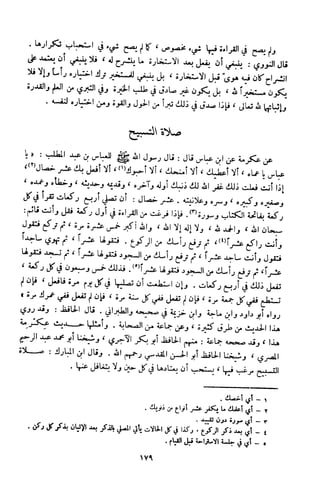 ولم يصح في القراءة فيها شيء مخصوص ، كما لم يصح شيء في استحباب تكرارها .
قال النووي : ينبغي أن يفعل بعد الاستخارة ما ينشرح له ، فلا ينبغي أن يعتمد على
انشراح كان فيه هوى قبل الاستخارة ، بل ينبغي للمستخير ترك اختياره رأساً وإلا فلا
يكون مستخيراً لله ، بل يكون غير صادق في طلب الخيرة وفي التبري من العلم والقدرة
وإثباتها لله تعالى ، فإذا صدق في ذلك تبرأ من الحول والقوة ومن اختياره لنفسه .
صلاة التسبيح
عن عكرمة عن ابن عباس قال : قال رسول الله ﷺ للعباس بن عبد المطلب : « يا
عباس يا عماه ، ألا أعطيك ، ألا أمنحك ، ألا أحبوك (١) ، ألا أفعل بك عشر خصال (٢)،
إذا أنت فعلت ذلك غفر الله لك ذنبك أوله وآخره ، وقديمه وحديثه ، وخطأه وعمده ،
وصغيره وكبيره ، وسره وعلانيته . عشر خصال : أن تصلي أربع ركعات تقرأ في كل
ركعة بفاتحة الكتاب وسورة (٣). فإذا فرغت من القراءة في أول ركعة فقل وأنت قائم :
سبحان الله ، والحمد لله ، ولا إله إلا الله ، والله أكبر خمس عشرة مرة ، ثم تركع فتقول
وأنت راكع عشراً (٤) ، ثم ترفع رأسك من الركوع . فتقولها عشراً ، ثم تهوي ساجداً
فتقول وأنت ساجد عشراً ، ثم ترفع رأسك من السجود فتقولها عشراً ، ثم تسجد فتقولها
عشراً ، ثم ترفع رأسك من السجود فتقولها عشراً (٥) . فذلك خمس وسبعون في كل ركعة ،
تفعل ذلك في أربع ركعات . وإن استطعت أن تصليها في كل يوم مرة فافعل ، فإن لم
تستطع ففي كل جمعة مرة ، فإن لم تفعل ففي كل سنة مرة ، فإن لم تفعل ففي عمرك مرة »
رواه أبو داود وابن ماجة وابن خزيمة في صحيحه والطبراني . قال الحافظ : وقد روي
هذا الحديث من طرق كثيرة ، وعن جماعة من الصحابة . وأمثلها حديث عكرمة
هذا ، وقد صححه جماعة : منهم الحافظ أبو بكر الآجري ، وشيخنا أبو محمد عبد الرحيم
المصري ، وشيخنا الحافظ أبو الحسن المقدسي رحمهم الله . وقال ابن المبارك : صلاة
التسبيح مرغب فيها ، يستحب أن يعتادها في كل حين ولا يتغافل عنها .
١ - أي أخصك .
٢ - أي أعلمك ما يكفر عشر أنواع من ذنوبك .
٣ - أي سورة دون تقييد .
٤ - أي بعد ذكر الركوع ، وكذا في كل الحالات يأتي المصلي بالذكر بعد الإتيان بذكر كل ركن .
٥ - أي في جلسة الاستراحة قبل القيام .
١٧٩